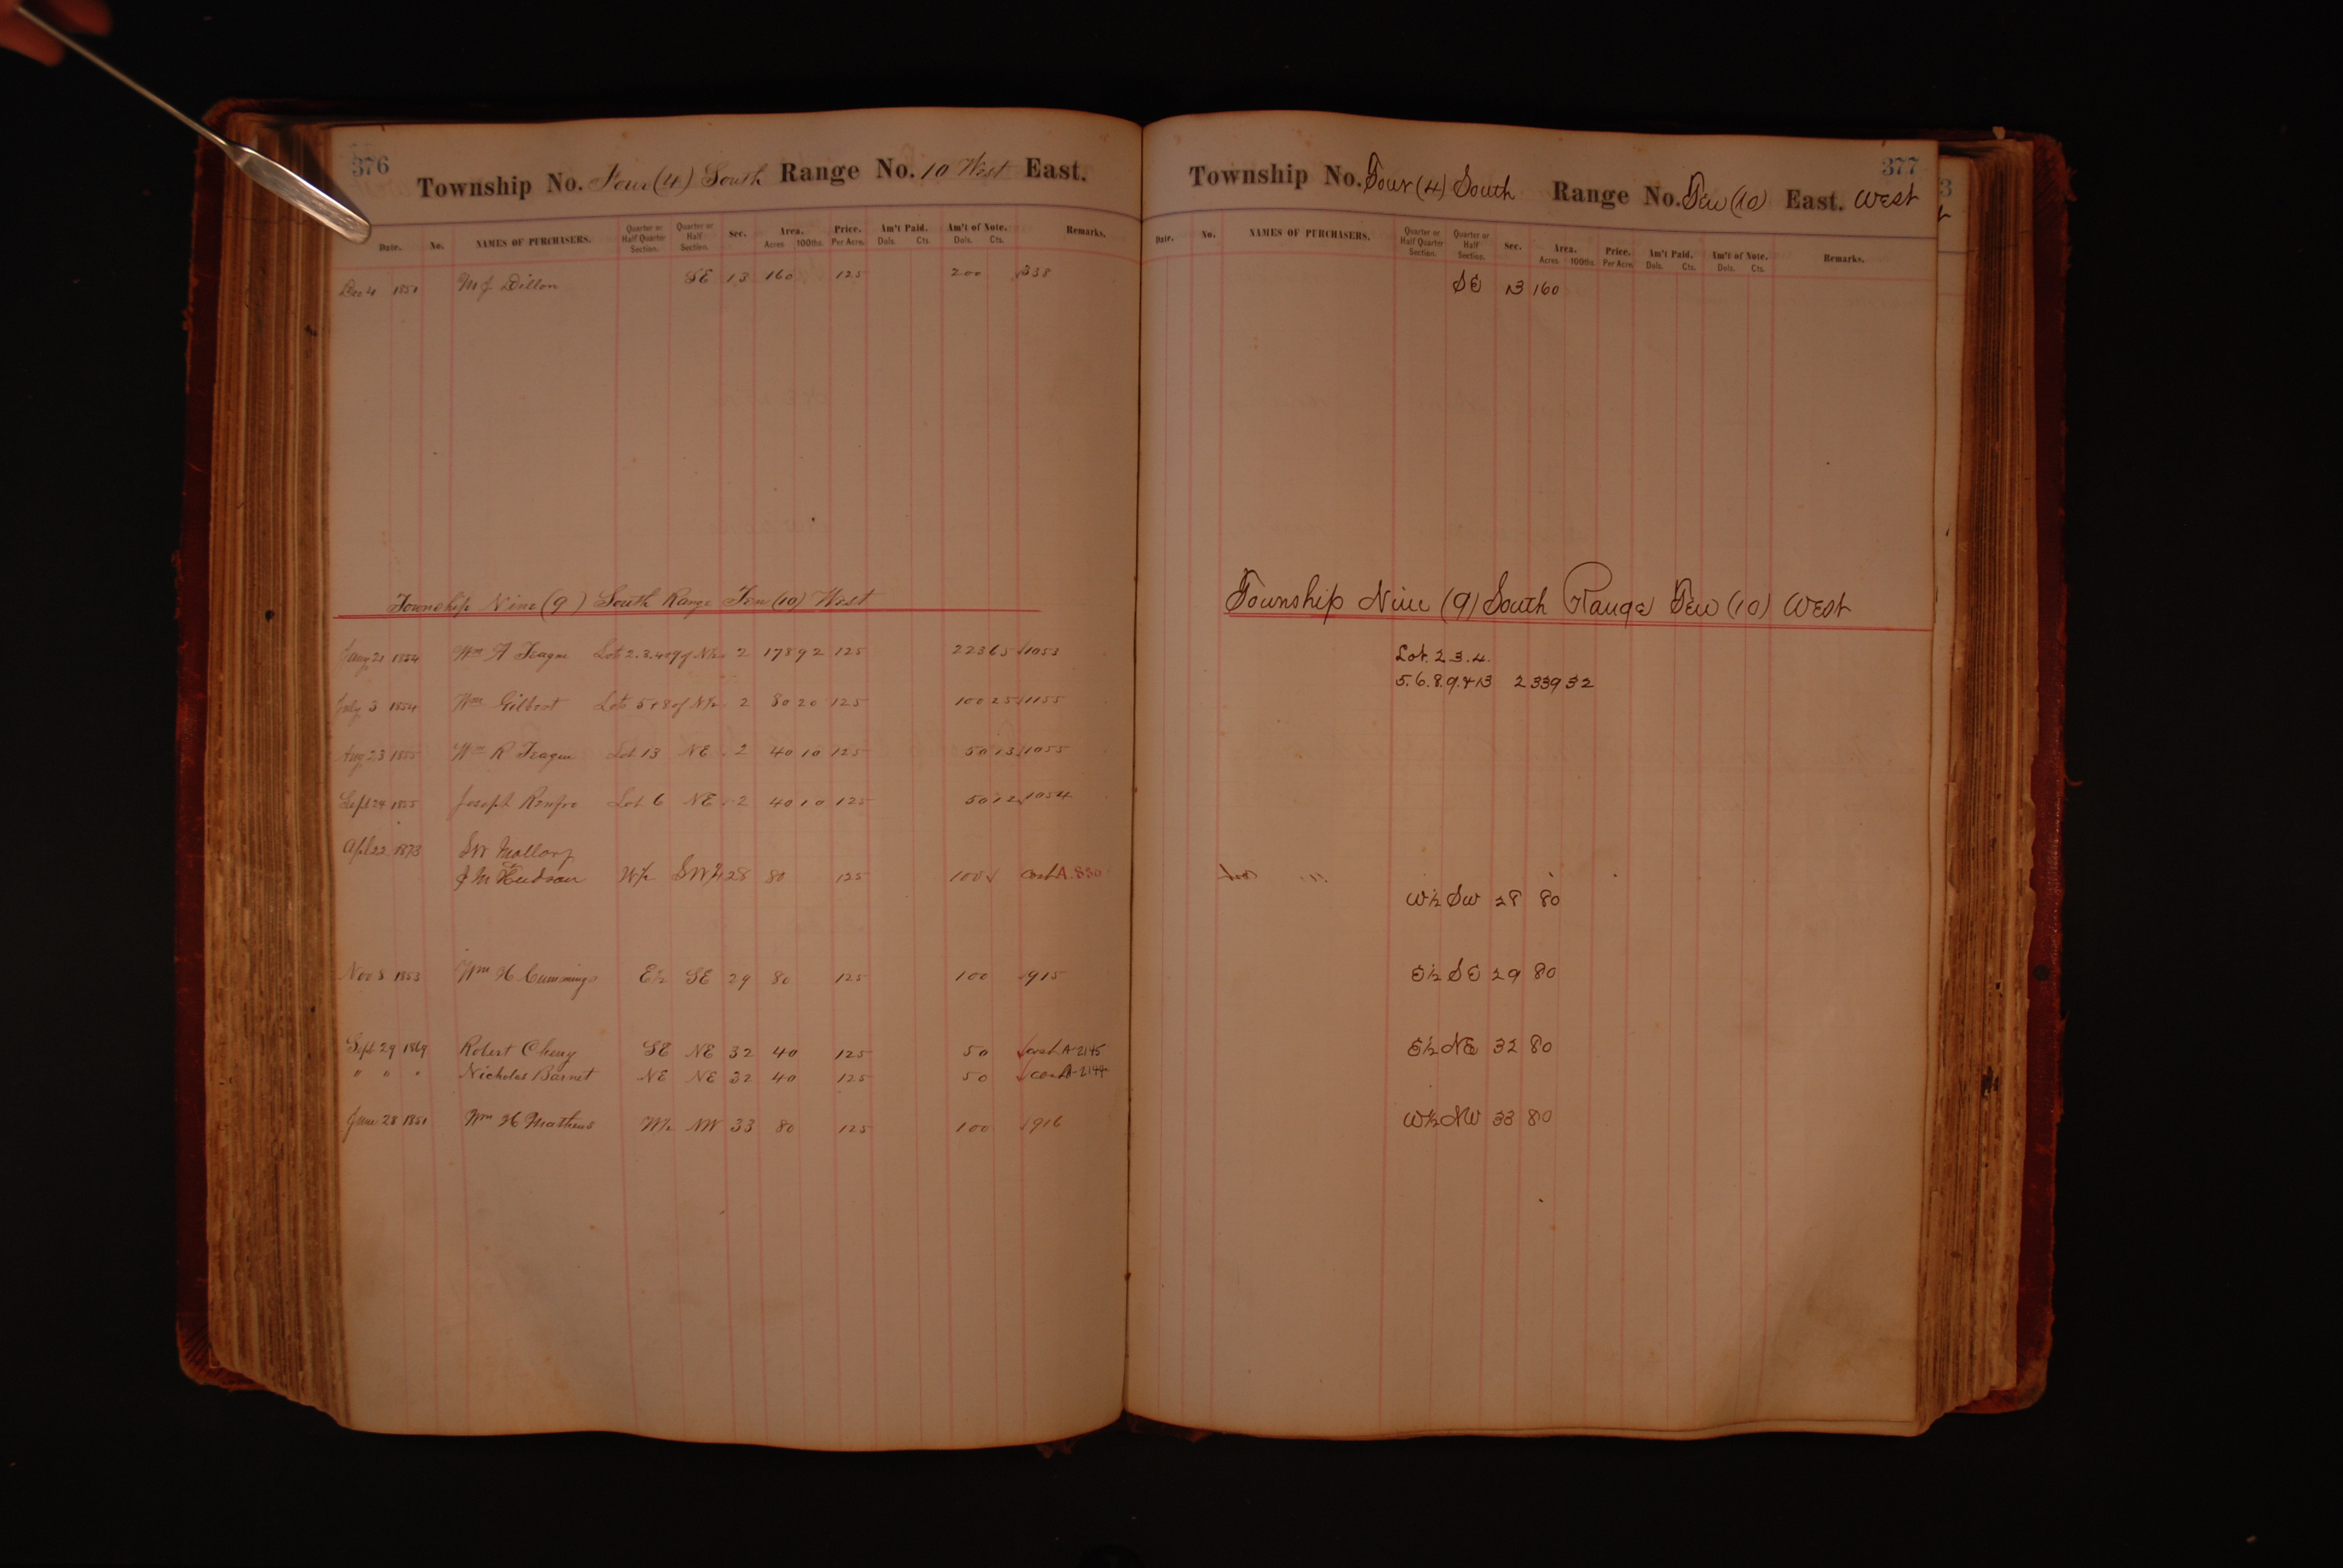 376
Township No. Four (4) South Range No. 10 West East.
Date. No. NAMES OF PURCHASERS. Quarter or Half Quarter Section. Quarter or Half Section. Sec. Area. Acres 100ths. Price. Per Acre. Am't Paid. Dols. Cts. Am't of Note. Dols. Cts. Remarks.
Dec 4 1851 M J Dillon SE 13 160 125 200 338
Township Nine (9) South Range Ten (10) West
21 1854 Wm A Teague Lots 2.3.4 & 9 of N½ 2 178 92 125 223 65 1053
July 3 1854 Wm Gilbert Lots 5 & 8 of N½ 2 80 20 125 100 25 1155
Aug 23 1855 Wm R Teague Lot 13 NE 2 40 10 125 50 13 1055
Sept 24 1855 Joseph Renfro Lot 6 NE 2 40 10 125 50 12 1054
Apl 22 1873 S W Mallory
J M Hudson W½ SW¼ 28 80 125 100 cash A. 830
Nov 8 1853 Wm H Cummings E½ SE 29 80 125 100 915
Sept 29 1869 Robert Cheny SE NE 32 40 125 50 cash A-2145
" " " Nicholas Barnet NE NE 32 40 125 50 cash A-2144
June 28 1851 Wm H Mathews W½ NW 33 80 125 100 916
377
Township No. Four (4) South Range No. Ten (10) East. West
Date. No. NAMES OF PURCHASERS. Quarter or Half Quarter Section. Quarter or Half Section. Sec. Area. Acres 100ths. Price. Per Acre. Am't Paid. Dols. Cts. Am't of Note. Dols. Cts. Remarks.
SE 13 160
Township Nine (9) South Range Ten (10) West
Lot. 2 3. 4.
5. 6. 8. 9. & 13 2 339 32
W½ SW 28 80
E½ SE 29 80
E½ NE 32 80
W½ NW 33 80